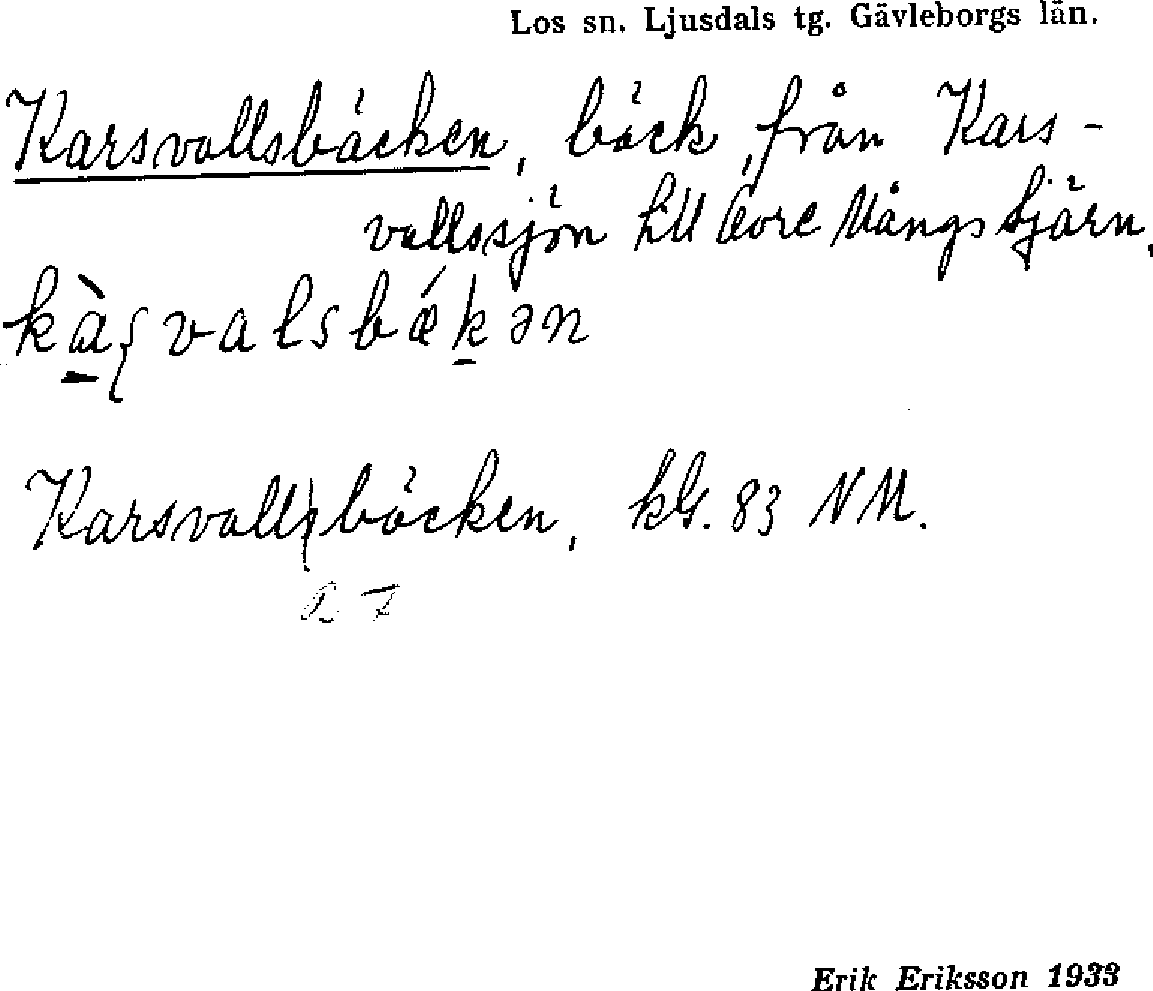 Los sn. Ljusdals tg. Gävleborgs län.
Karsvallsbäcken, bäck, från Kars-
vallssjön till Övre Mångstjärn.
Karsvallsbäcken, kG. 83 NM.
Erik Eriksson 1933